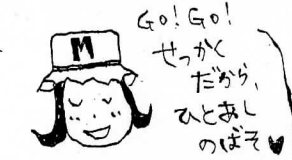 GO! GO!
せっかく
だから,
ひとあし
のばそ♥
M